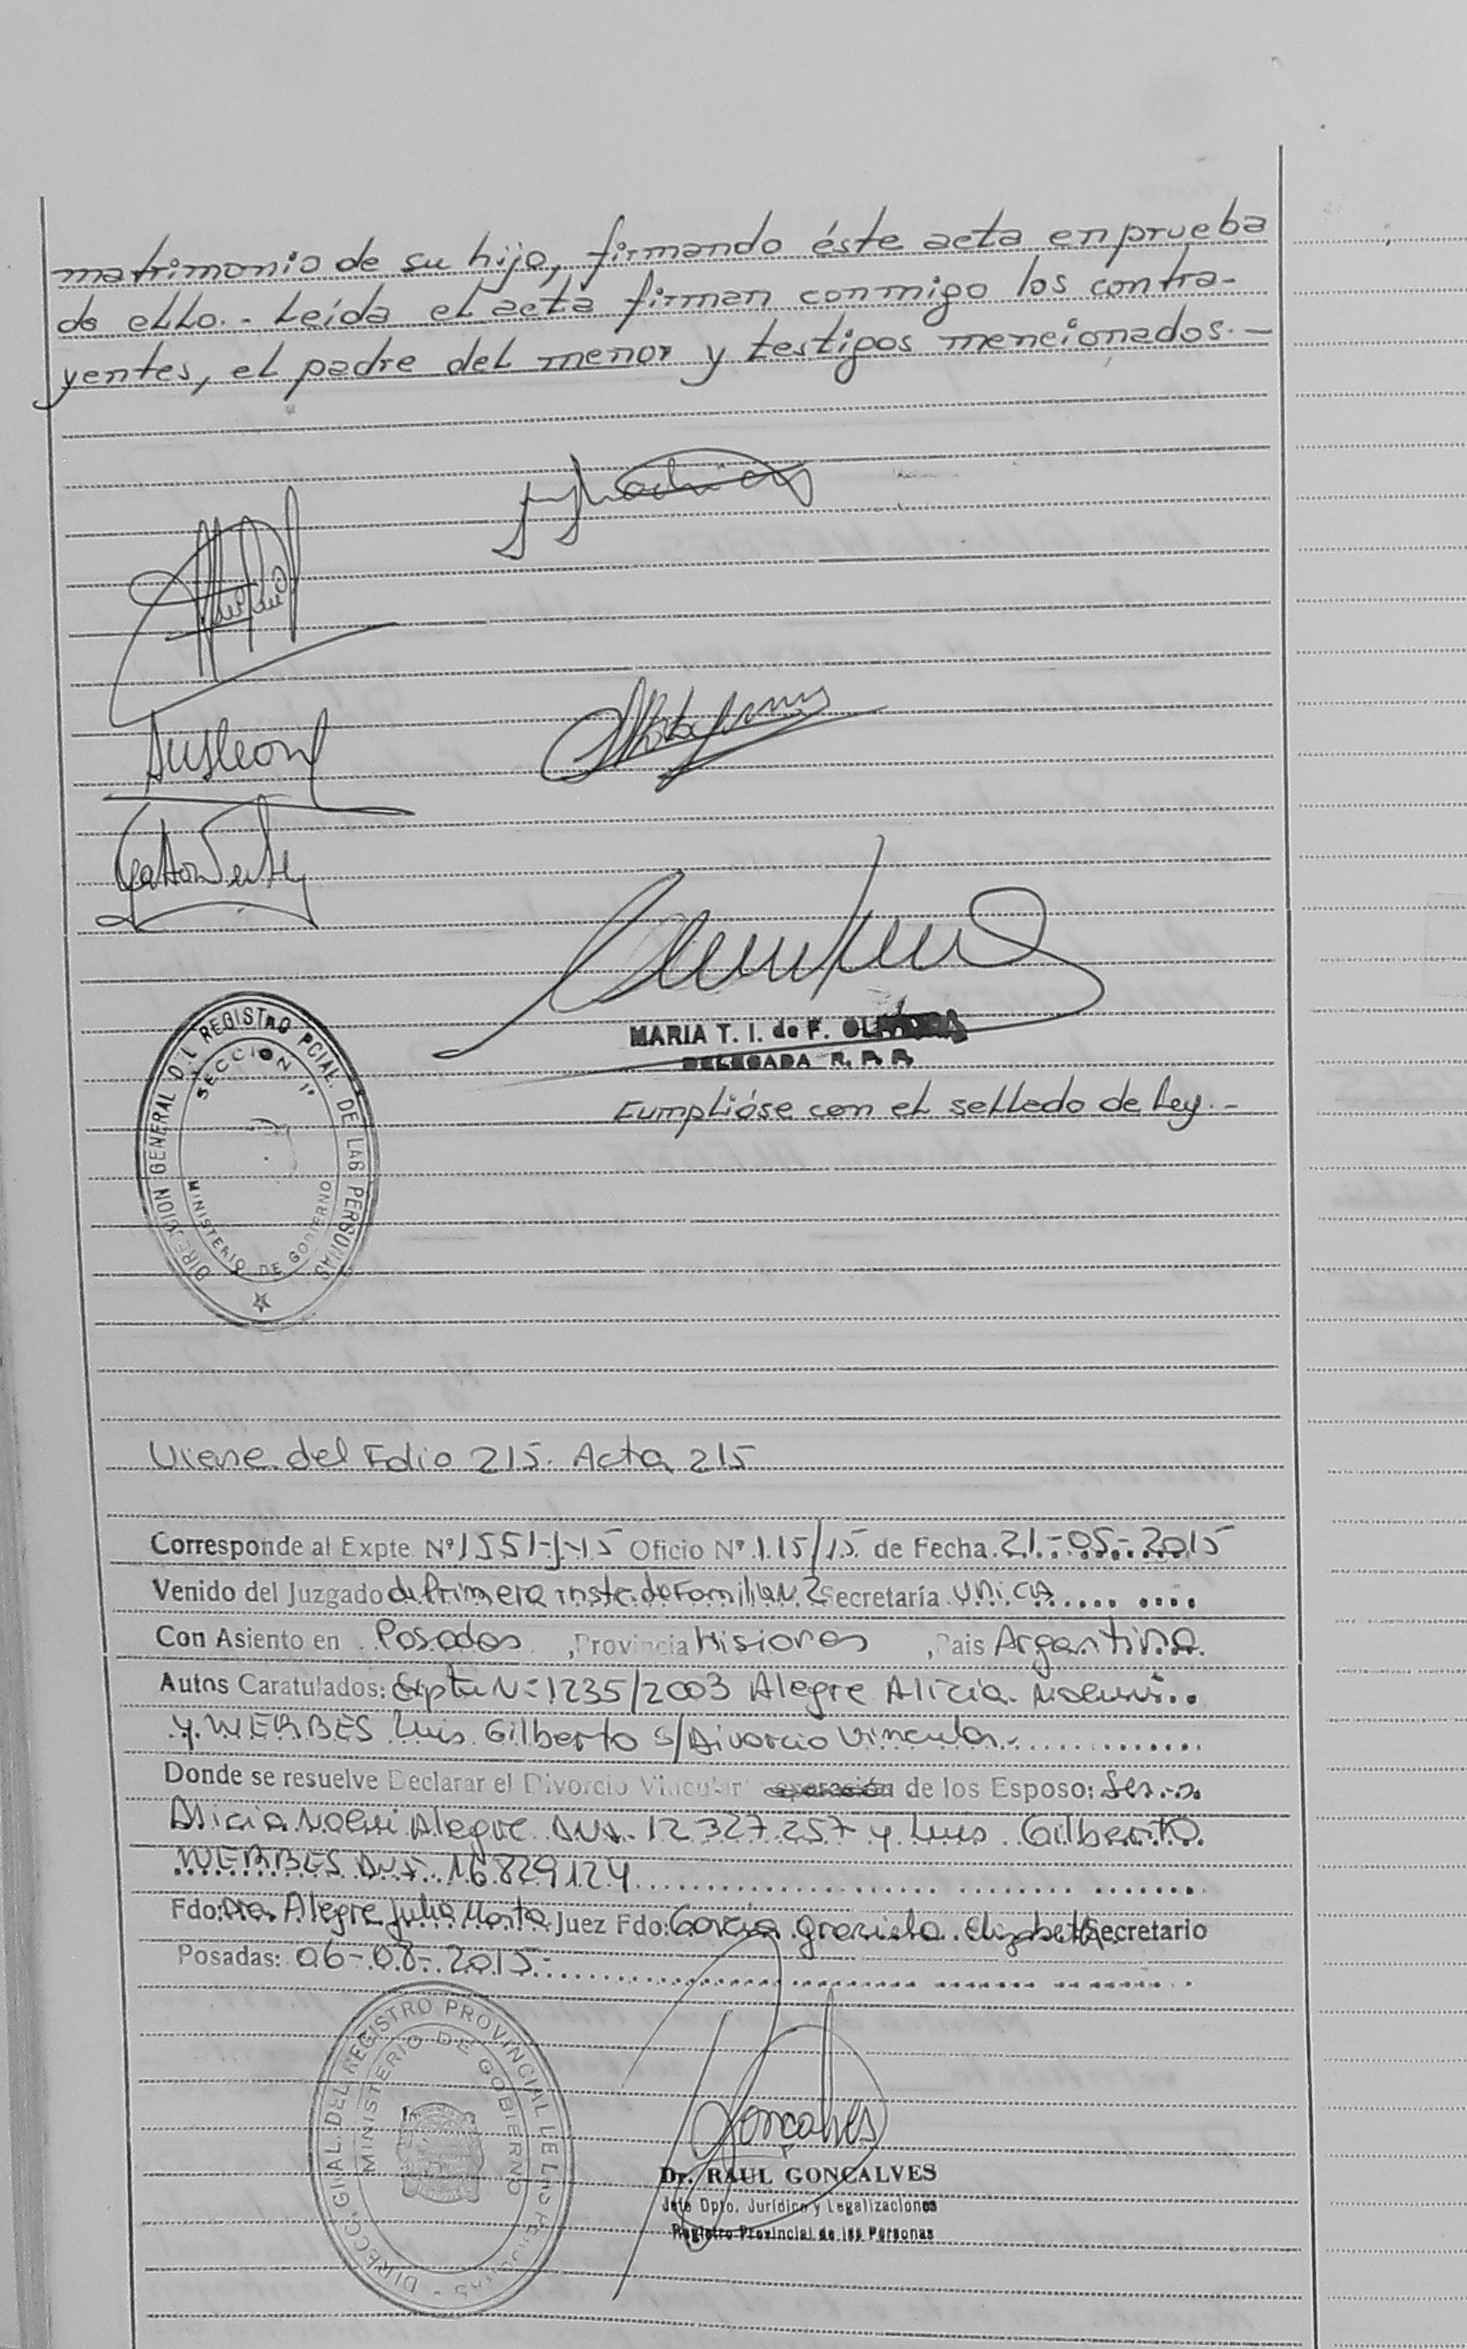 matrimonio de su hijo, firmando éste acta en prueba
de ello.- Leída el acta firman conmigo los contra-
yentes, el padre del menor y testigos mencionados.-
MARIA T. I. de F.
DELEGADA R. P. P.
Cumplióse con el sellado de Ley.-
DIRECCION GENERAL DEL REGISTRO PCIAL. DE LAS PERSONAS
SECCION 1ª
MINISTERIO DE GOBIERNO
Viene del Folio 215. Acta 215
Corresponde al Expte Nº 1551-J-15 Oficio Nº 115/15 de Fecha 21-05-2015
Venido del Juzgado de Primera Insta. de Familia N 2 Secretaría UNICA
Con Asiento en Posadas, Provincia Misiones, Pais Argentina.
Autos Caratulados: Expte Nº 1235/2003 Alegre Alicia Noemi
y WERBES Luis Gilberto S/Divorcio Vincular.-
Donde se resuelve Declarar el Divorcio Vincular de los Esposo:
Alicia Noemi Alegre 12327257 y Luis Gilberto
WERBES 16829124
Fdo: Dra. Alegre Julia Marta Juez Fdo: Graciela Elizabeth Secretario
Posadas: 06-08-2015-
DIRECC. GRAL. DEL REGISTRO PROVINCIAL DE LAS PERSONAS
MINISTERIO DE GOBIERNO
Goncalves
Dr. RAUL GONCALVES
Jefe Dpto. Jurídico y Legalizaciones
Registro Provincial de las Personas